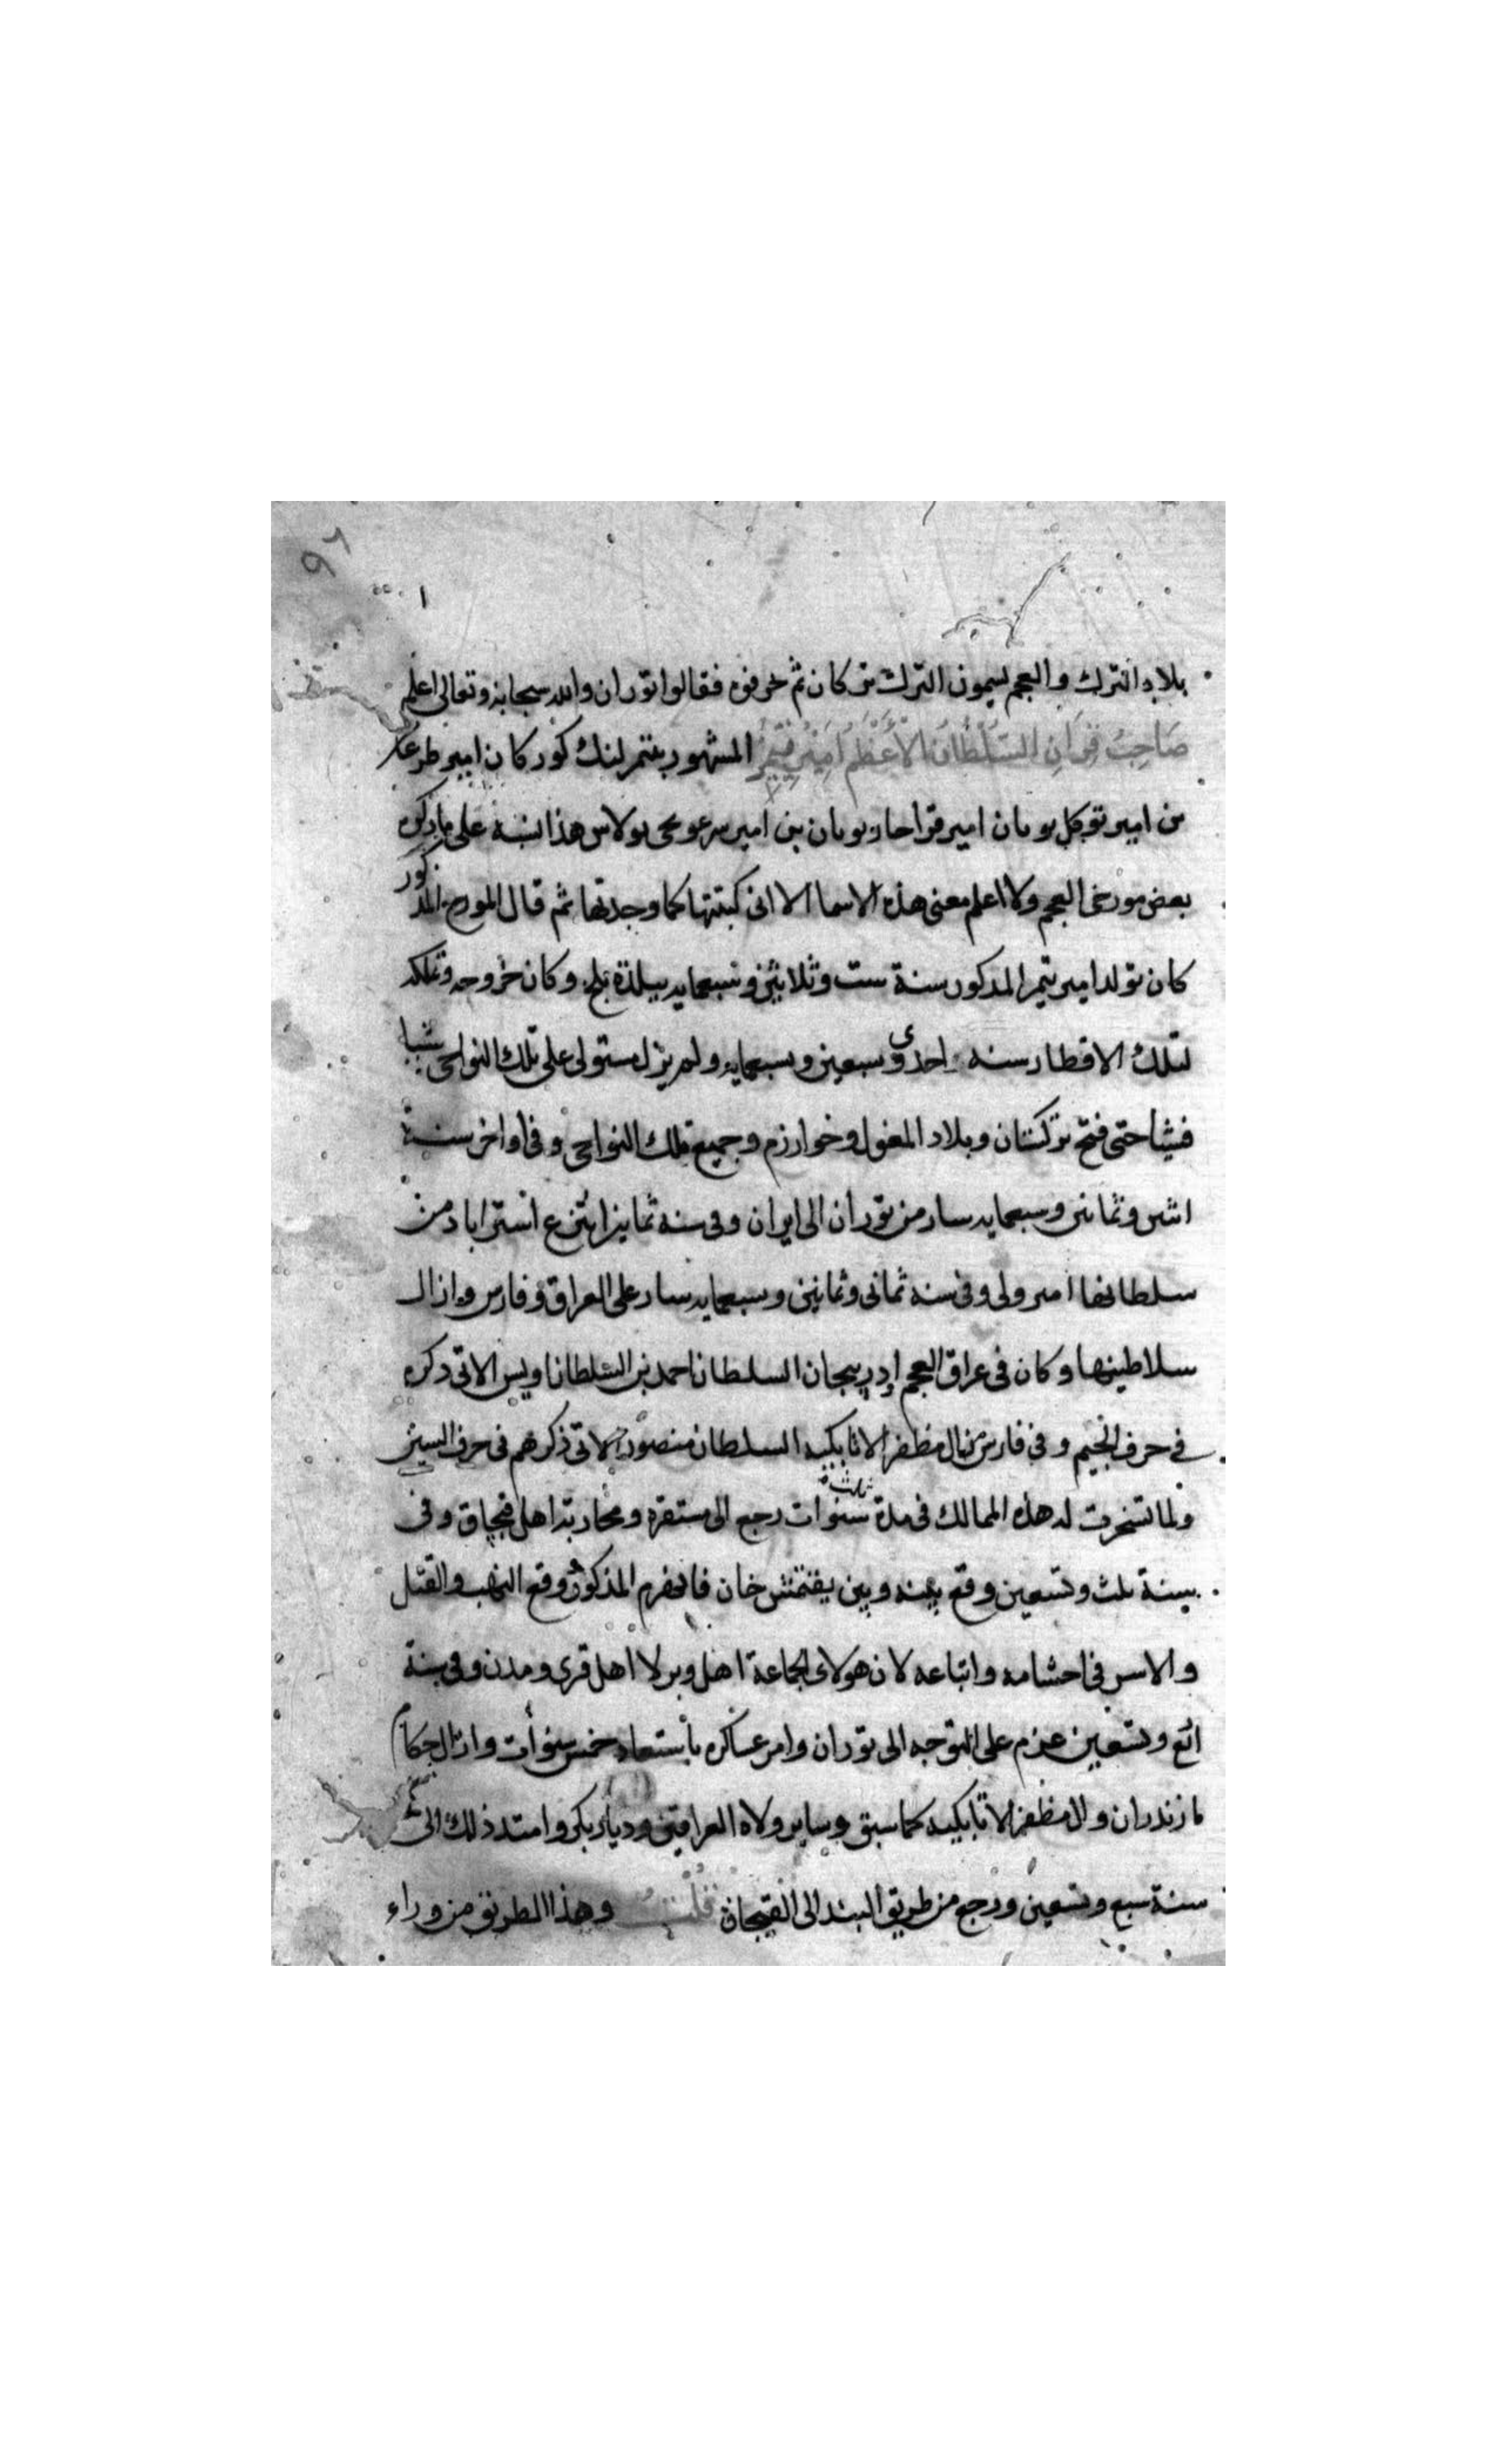 ٩٦
بلاد الترك والعجم يسمون الترك تركان ثم حرفوه فقالوا توران والله سبحانه وتعالى اعلم
صَاحِبُ قِرَانِ السُّلْطَانُ الْأَعْظَمُ اَمِيْر تِيْمُرْ المشهور بتمر لنك كور كان امير طرغا
بن امير توكل بو مان امير قراحار بو مان بن امير هذا نسبه على ما ذكره
بعض مورخى العجم ولا اعلم معنى هذه الاسما الا انى كتبتها كما وجدتها ثم قال المورخ المذكور
كان تولد امير تيمر المذكور سنة ست وثلاثين وسبعمايه ببلدة بلخ وكان خروجه وتملكه
لتلك الاقطار سنه احدى وسبعين وسبعمايه ولم يزل مستولى على تلك النواحى شيا
فشيا حتى فتح تركستان وبلاد المغول وخوارزم وجميع تلك النواحى وفى اواخر سنة
اثنين وثمانين وسبعمايه سار من توران الى ايران وفى سنه ثمانين انتزع استراباد من
سلطانها امير ولى وفى سنه ثمانى وثمانين وسبعمايه سار على العراق وفارس وازال
سلاطينها وكان فى عراق العجم السلطان احمد بن السلطان اويس الاتى ذكره
فى حرف الجيم وفى فارس من ال مظفر الاتابكيه السلطان منصور الاتى ذكرهم فى حرف السين
ولما تسخرت له هذه الممالك فى مدة ثلثة سنوات رجع الى مستقره ومحاربته اهل قبجاق وفى
سنة ثلث وتسعين وقع بينه وبين يقتمش خان فانهزم المذكور ووقع النهب والقتل
والاسر فى احشامه واتباعه لان هولاى الجماعة اهل وبر لا اهل قرى ومدن وفى سنة
اربع وتسعين عزم على التوجه الى توران وامر عساكره باستعداد خمس سنوات وازال حكام
مازندران وال مظفر الاتابكيه كما سبق وساير ولاه العراقين وديار بكر وامتد ذلك الى
سنة سبع وتسعين ورجع من طريق البند الى القبجاق قُلْتُ وهذا الطريق من وراء